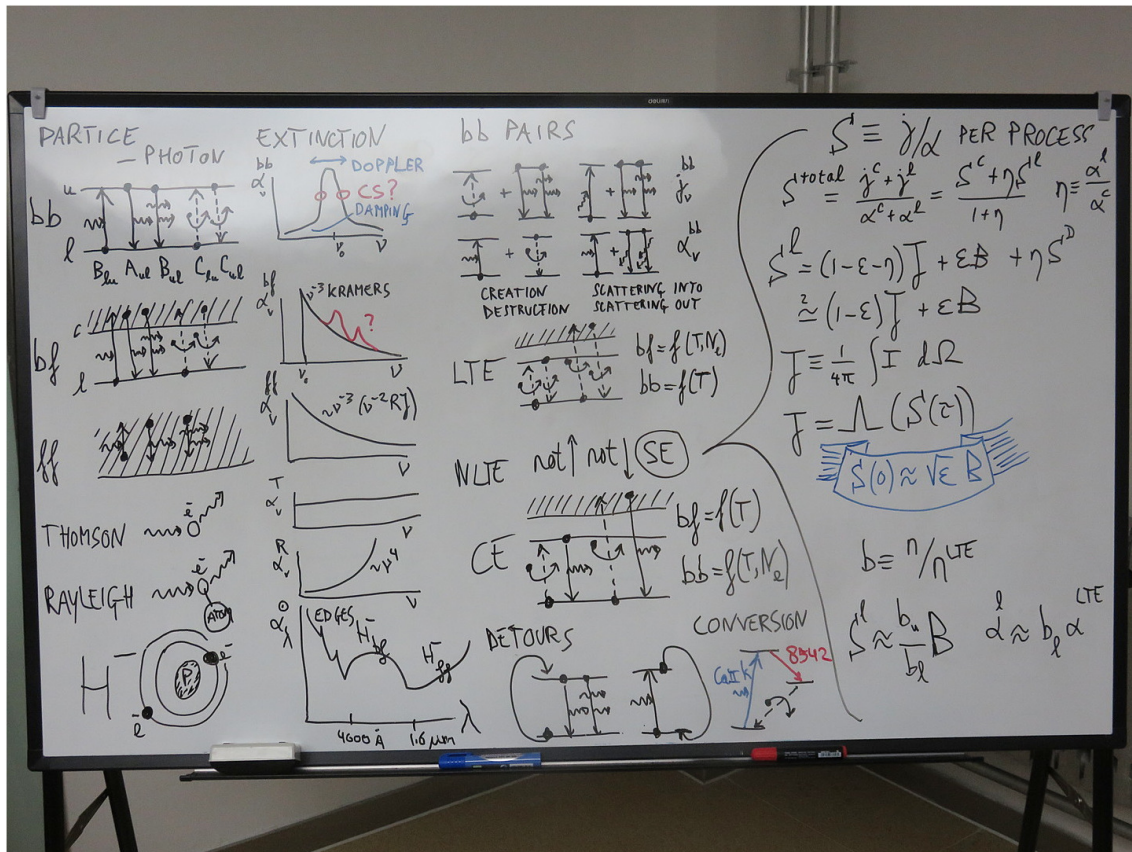 deli
PARTICE
– PHOTON
bb
u
l
B_lu A_ul B_ul C_lu C_ul
bf
c
l
ff
THOMSON
e⁻
RAYLEIGH
e⁻
ATOM
H⁻
P
e⁻
e⁻
EXTINCTION
α_ν^bb
DOPPLER
CS?
DAMPING
ν_0
ν
α_ν^bf
ν⁻³ KRAMERS
?
ν_0
ν
α_ν^ff
~ν⁻³ (ν⁻² RJ)
ν
α_ν^T
ν
α_ν^R
~ν⁴
ν
EDGES
H⁻_bf
H⁻_ff
4000 Å
1.6 μm
λ
bb PAIRS
+
+
j_ν^bb
+
+
α_ν^bb
CREATION
DESTRUCTION
SCATTERING INTO
SCATTERING OUT
LTE
bf = f(T,N_e)
bb = f(T)
NLTE not↑ not↓ SE
CE
bf = f(T)
bb = f(T,N_e)
DETOURS
CONVERSION
CaII K
8542
S ≡ j/α PER PROCESS
S^total = (j^c + j^l)/(α^c + α^l) = (S^c + ηS^l)/(1+η) η ≡ α^l/α^c
S^l = (1-ε-η) J̄ + εB + ηS^D
≈? (1-ε) J̄ + εB
J ≡ 1/4π ∫ I dΩ
J = Λ (S(τ))
S(0) ≈ √ε B
b ≡ n/n^LTE
S^l ≈ b_u/b_l B α^l ≈ b_l α^LTE